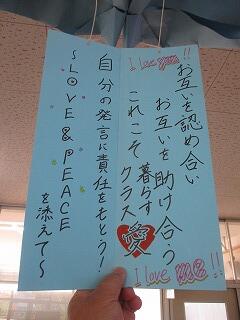 I love you!!
お互いを認め合い
お互いを助け合う
暮らす
これこそクラス愛
I love 組!!
自分の発言に責任をもとう!
～LOVE & PEACE
を添えて～